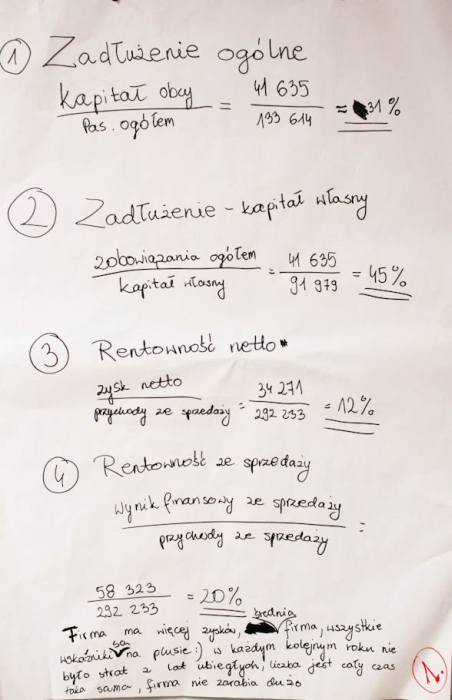 1 Zadłużenie ogólne
kapitał obcy / Pas. ogółem = 41 635 / 133 614 ≈ 31 %
2 Zadłużenie - kapitał własny
zobowiązania ogółem / kapitał własny = 41 635 / 91 979 = 45%
3 Rentowność netto
zysk netto / przychody ze sprzedaży = 34 271 / 292 233 = 12%
4 Rentowność ze sprzedaży
wynik finansowy ze sprzedaży / przychody ze sprzedaży =
58 323 / 292 233 = 20%
średnia
Firma ma więcej zysków, firma, wszystkie
wskaźniki są na plusie :) w każdym kolejnym roku nie
było strat z lat ubiegłych, liczba jest cały czas
taka sama, firma nie zarabia dużo
1.